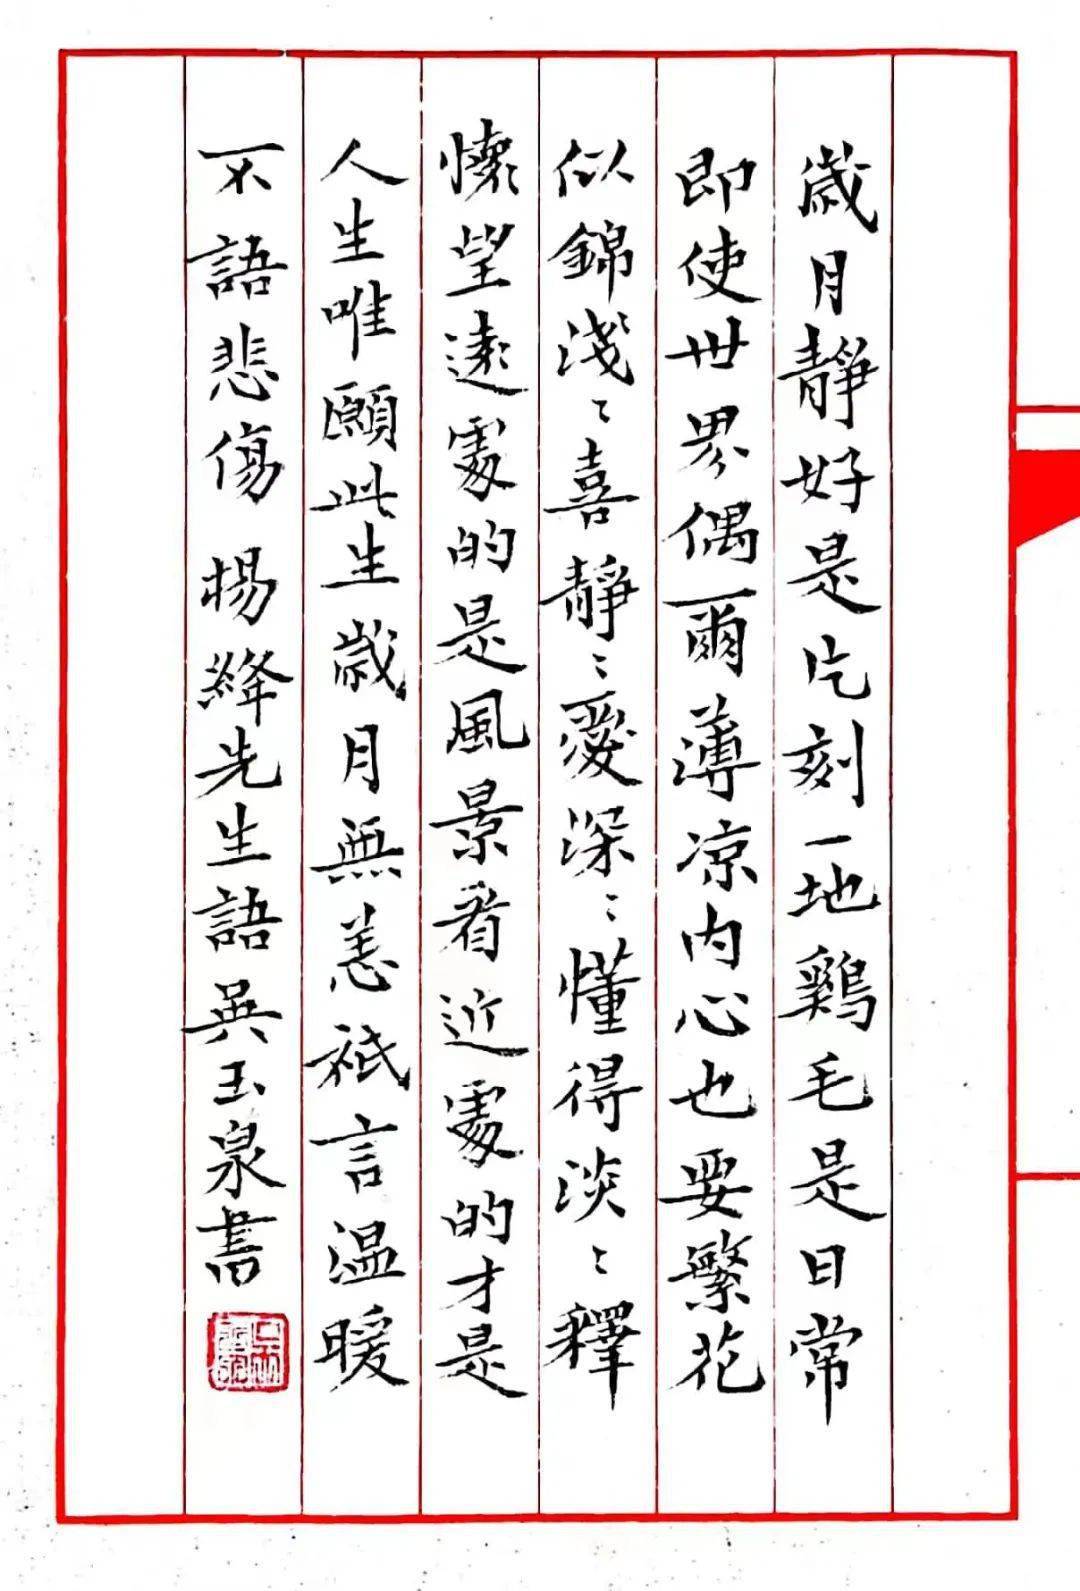 歲月靜好是片刻一地鷄毛是日常
即使世界偶爾薄凉内心也要繁花
似錦淺〻喜靜〻愛深〻懂得淡〻釋
懷望遠處的是風景看近處的才是
人生唯願此生歲月無恙衹言温暖
不語悲傷 楊絳先生語吳玉泉書